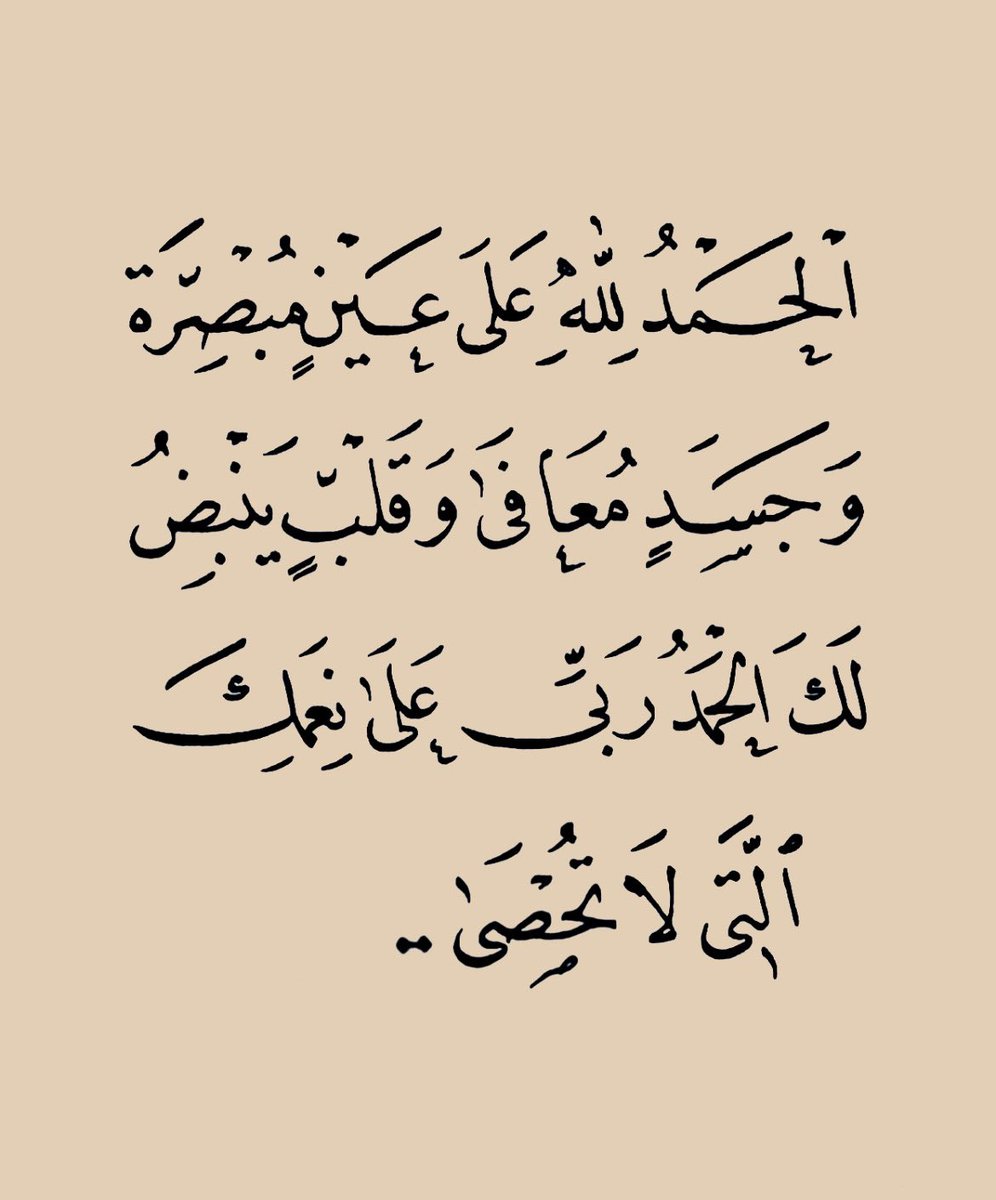 اَلْحَمْدُ لِلّٰهِ عَلَى عَيْنٍ مُبْصِرَة
وَجَسَدٍ مُعَافَىٰ وَقَلْبٍ يَنْبِضُ
لَكَ اَلْحَمْدُ رَبِّي عَلَىٰ نِعَمِكَ
ٱلَّتِي لَا تُحْصَىٰ ..